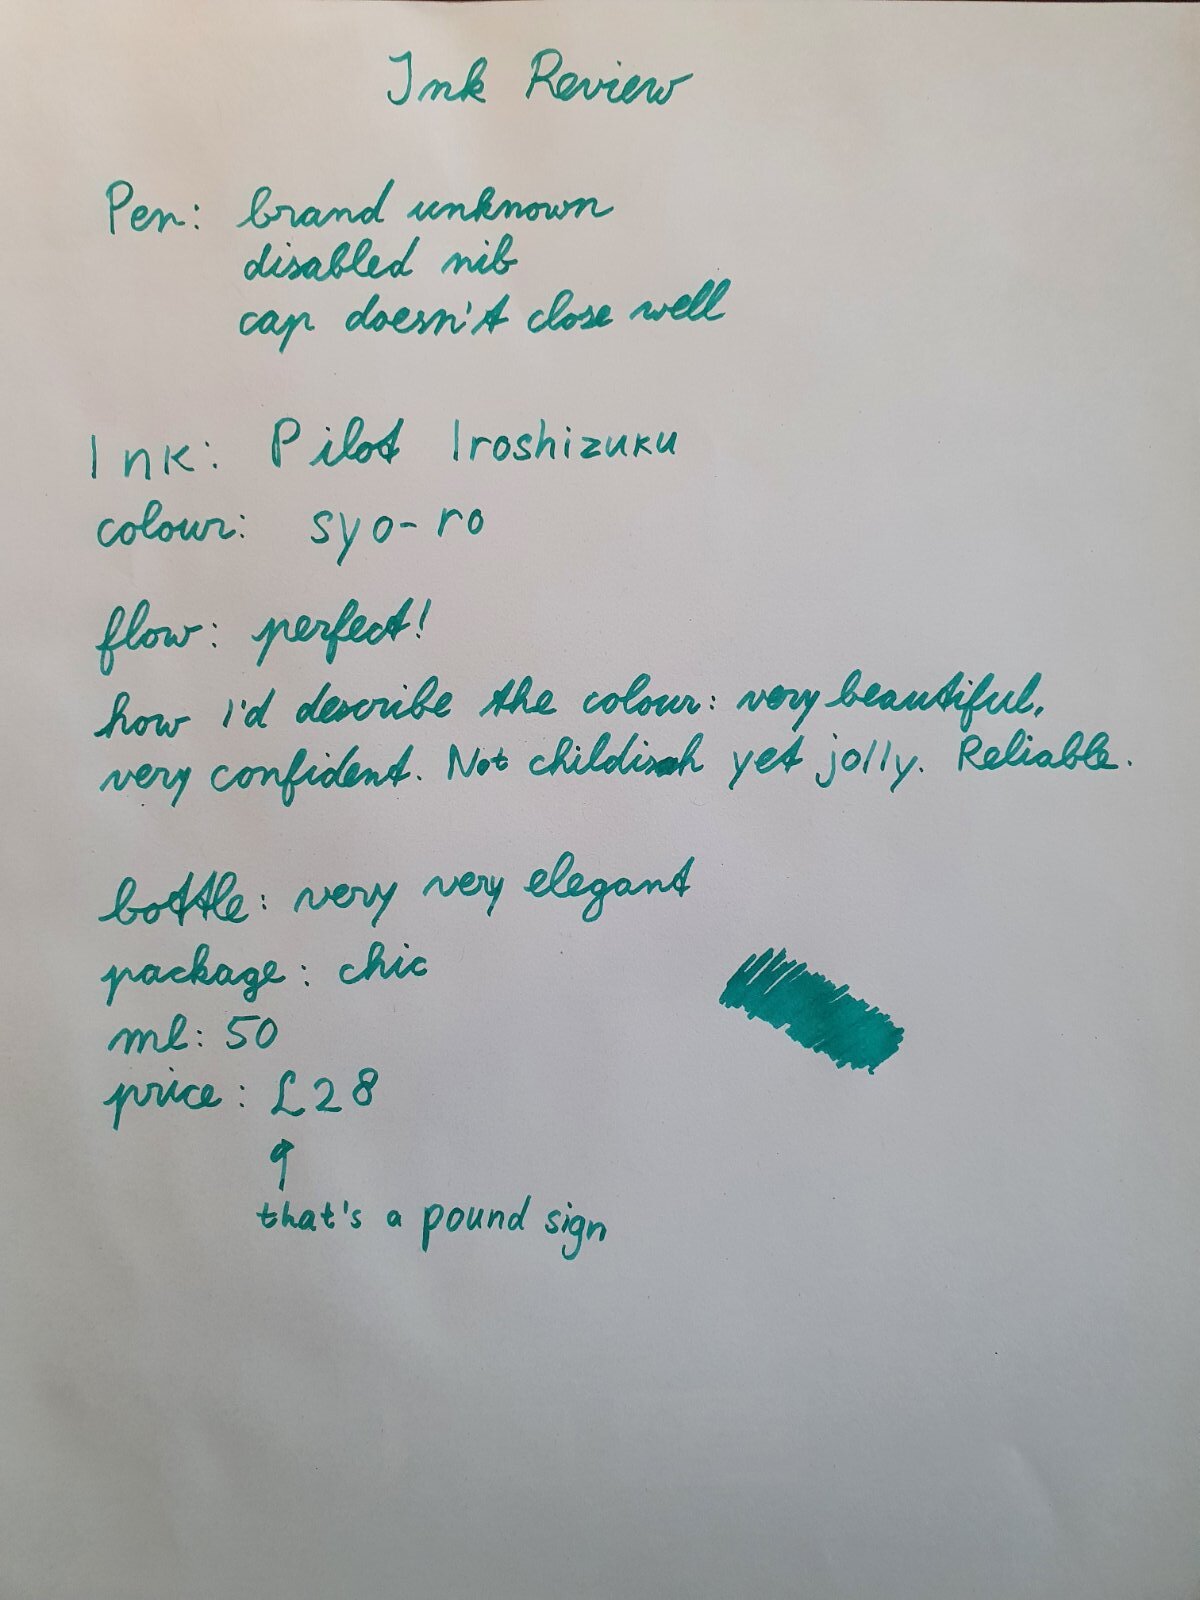 Ink Review
Pen: brand unknown
disabled nib
cap doesn't close well
Ink: Pilot Iroshizuku
colour: syo-ro
flow: perfect!
how I'd describe the colour: very beautiful,
very confident. Not childish yet jolly. Reliable.
bottle: very very elegant
package: chic
ml: 50
price: £28
that's a pound sign